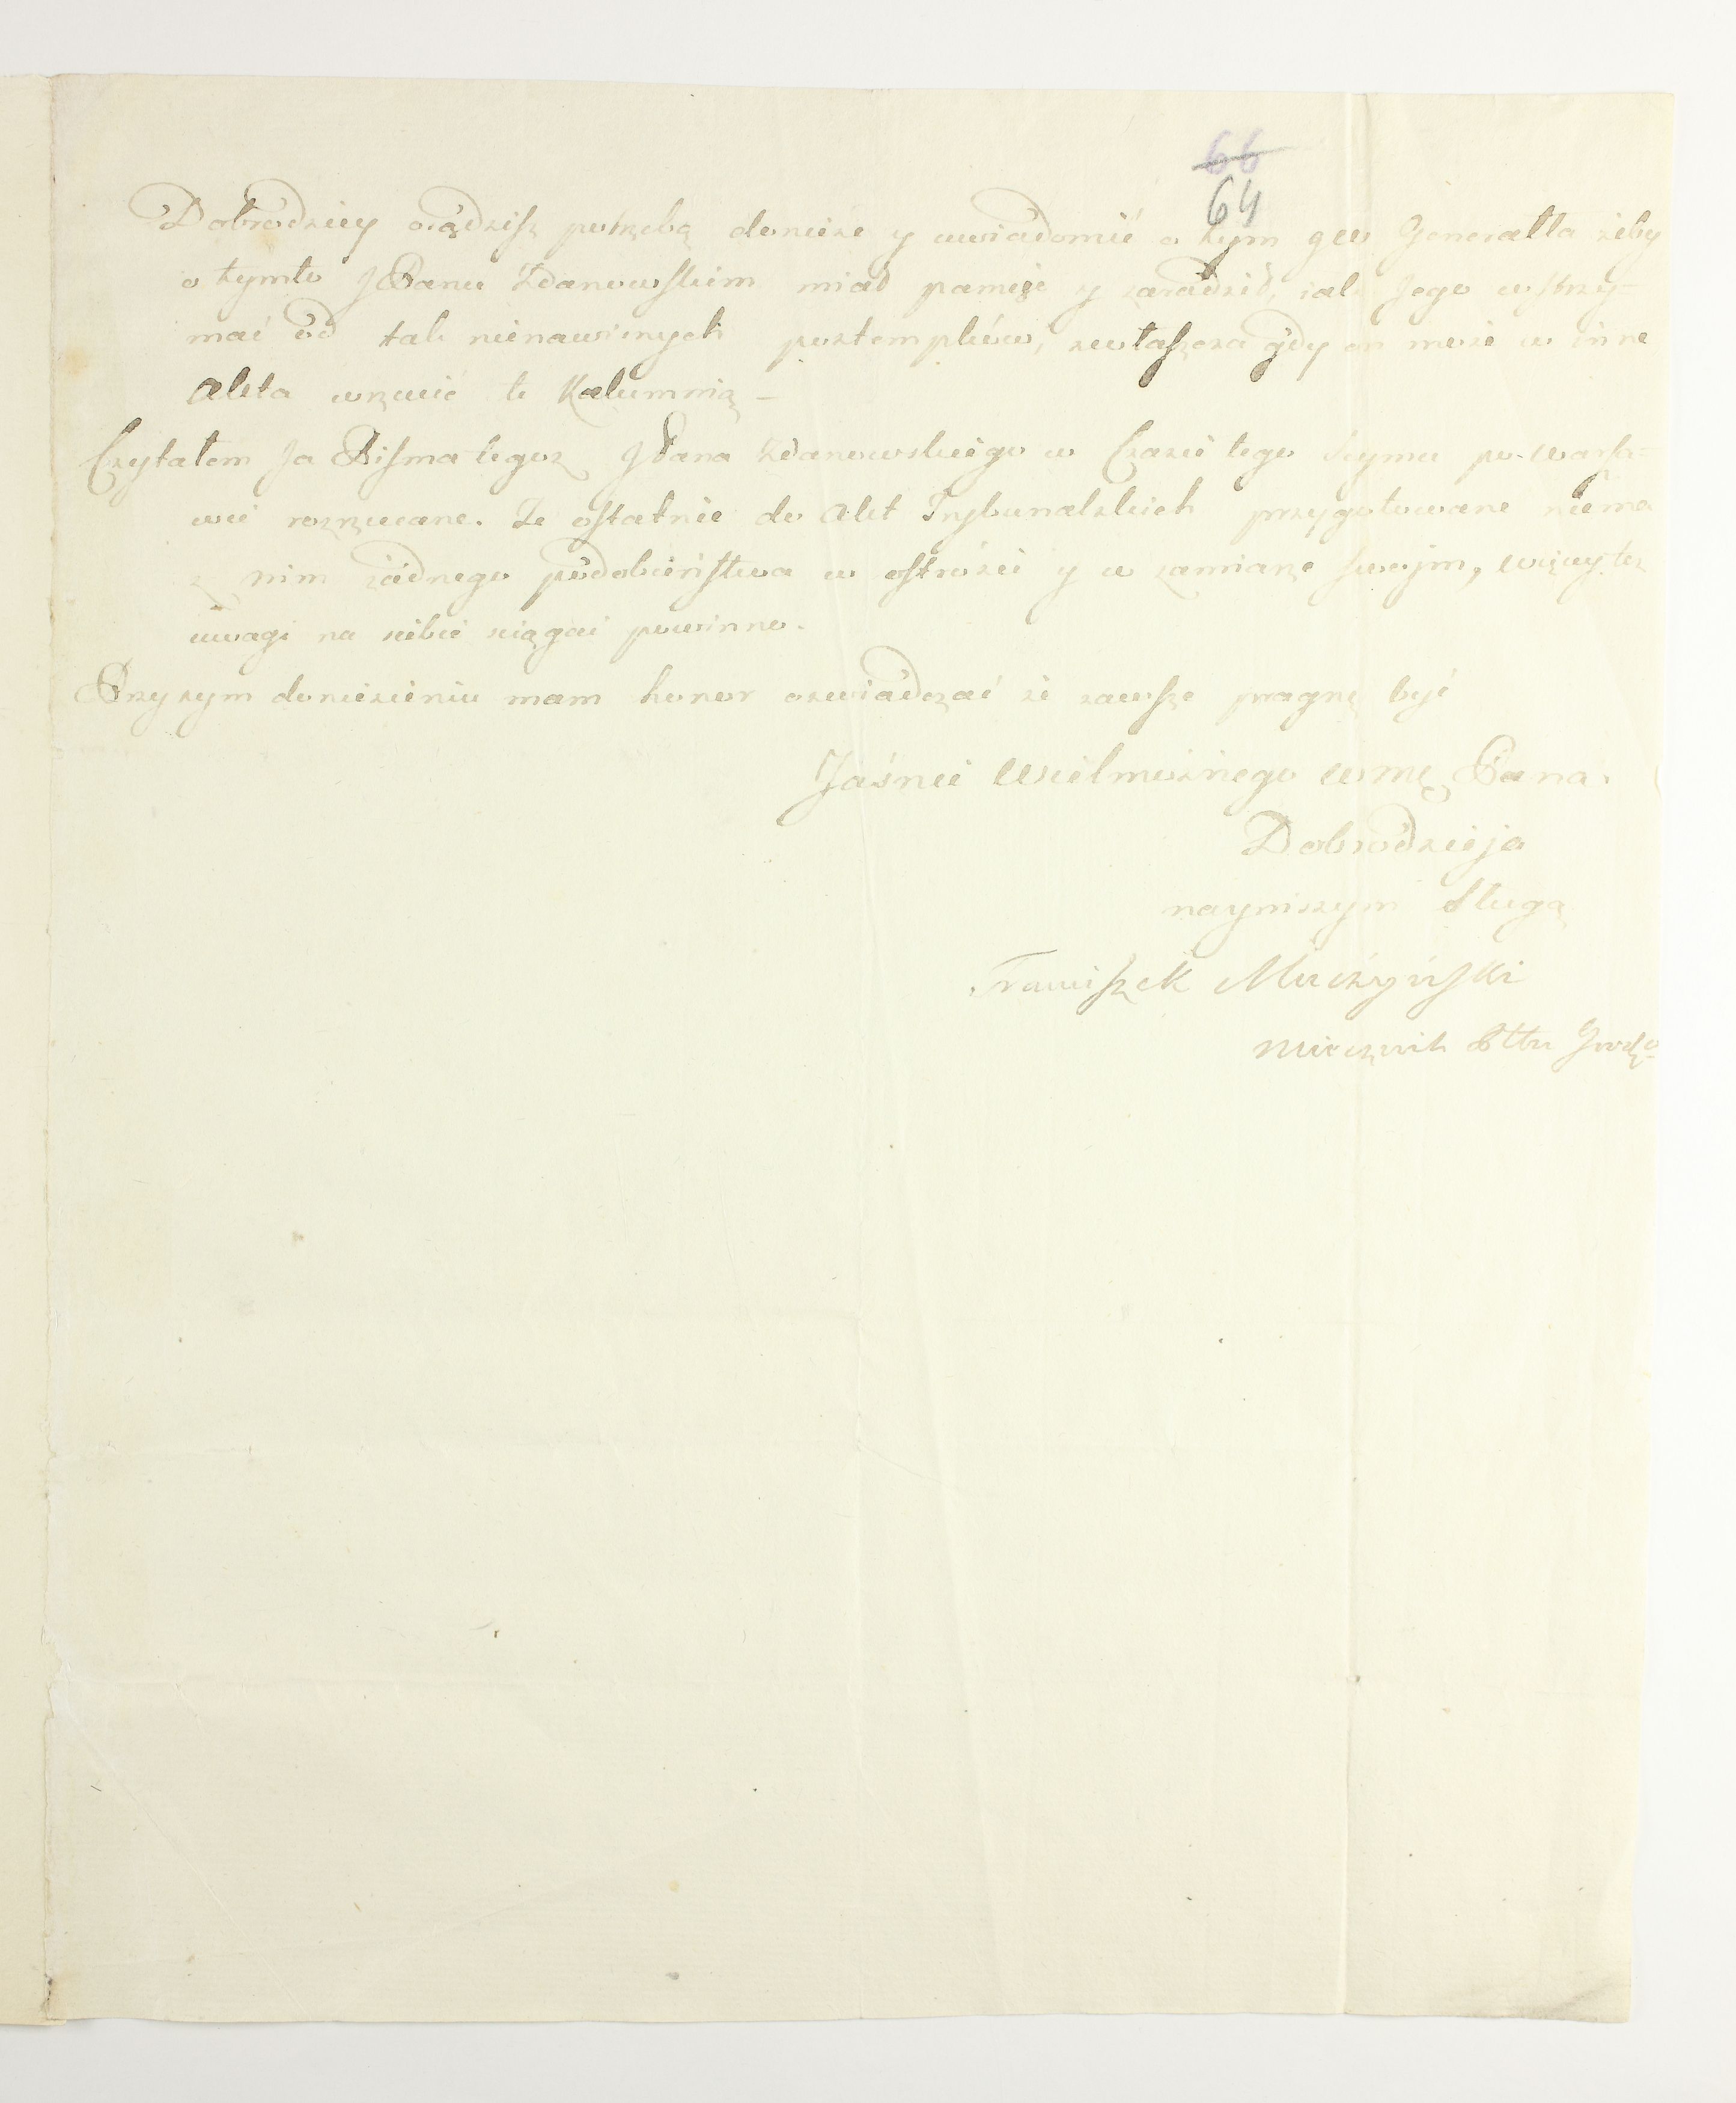 66
64
Dobrodziey osądzisz potrzebą donieźe y uwiadomić o tym JW Generałła żeby
o tymto JPanu Zdanowskim miał pamięć y zaradził, iak Jego wstrzy=
mać od tak nienawisnych postempków, zwłaszcza gdy on może w inne
Akta wrzucić te Kalumnią –
Czytałem Ja Pisma tegoż JPana Zdanowskiego w Czasie tego Seymu po Warsza=
wie rozrzucane. Te ostatnie do Akt Trybunalskich przygotowane niema
z nim żadnego podobieństwa w ostrości y w zamiarze swojm, więcy też
uwagi na siebie sciągać powinno.
Przy tym doniesieniu mam honor oswiadczać że zawsze pragnę być
Jaśnie Wielmożnego WMę Pana
Dobrodzieja
nayniższym Sługą
Franciszek Muczyński
Miecznik Pttu Grodzgo